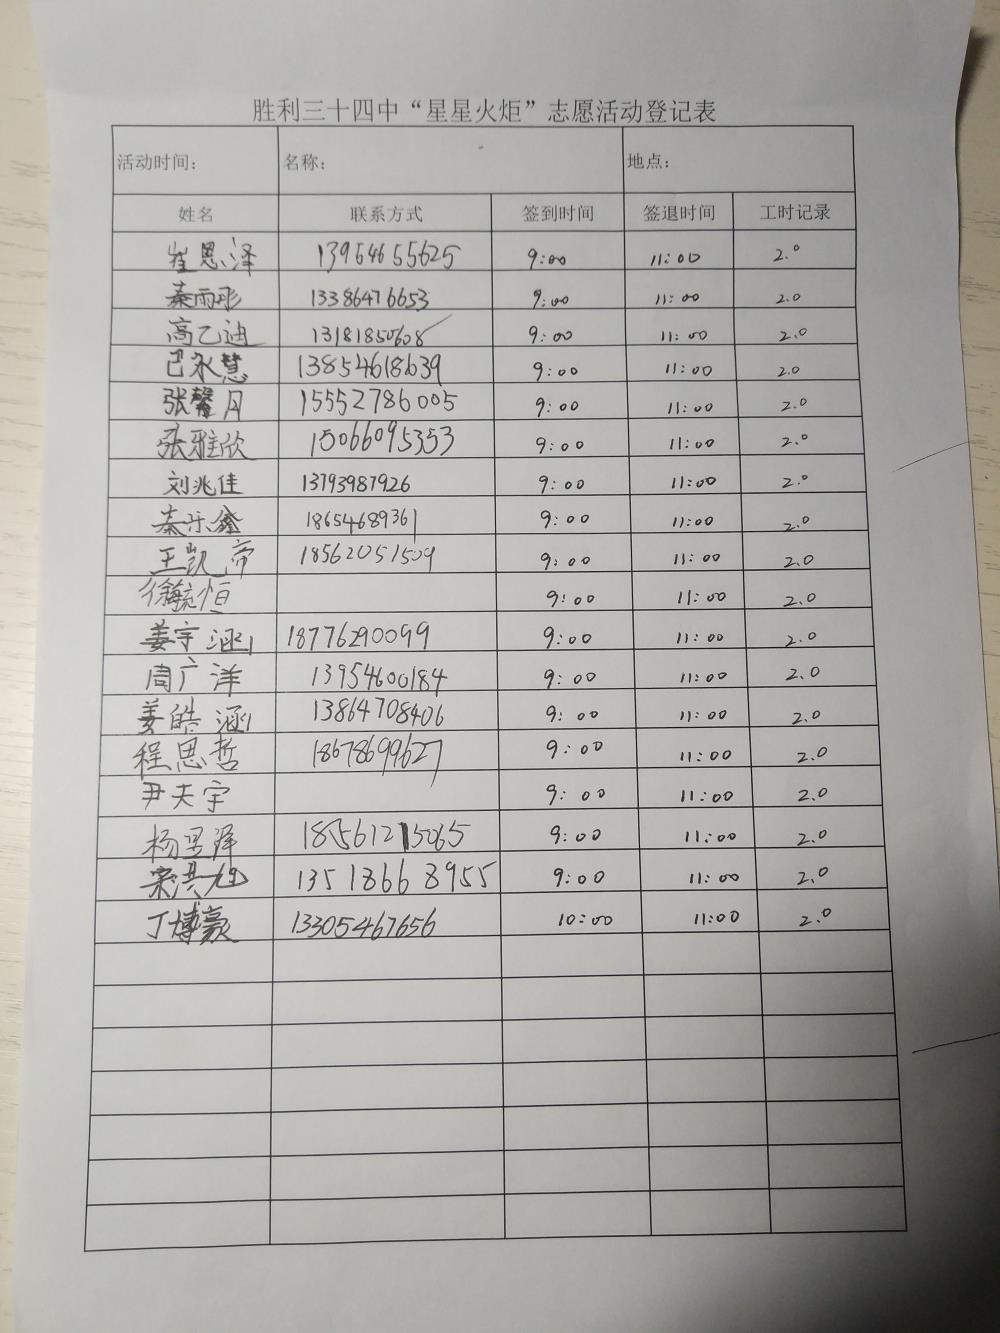 胜利三十四中“星星火炬”志愿活动登记表
活动时间: 名称: 地点:
姓名 联系方式 签到时间 签退时间 工时记录
崔恩泽 13954655625 9:00 11:00 2.0
秦雨彤 13386476653 9:00 11:00 2.0
高乙迪 13181850608 9:00 11:00 2.0
巴永慧 13854618639 9:00 11:00 2.0
张馨月 15552786005 9:00 11:00 2.0
张雅欣 15066095353 9:00 11:00 2.0
刘兆佳 13793987926 9:00 11:00 2.0
秦乐鑫 18654689361 9:00 11:00 2.0
王凯帝 18562051509 9:00 11:00 2.0
徐毓恒 9:00 11:00 2.0
姜宇涵 18776290099 9:00 11:00 2.0
周广洋 13954600184 9:00 11:00 2.0
姜皓涵 13864708406 9:00 11:00 2.0
程思哲 18678699627 9:00 11:00 2.0
尹天宇 9:00 11:00 2.0
杨昱泽 18561215065 9:00 11:00 2.0
宋洪旭 13518668955 9:00 11:00 2.0
丁博豪 13305467656 10:00 11:00 2.0